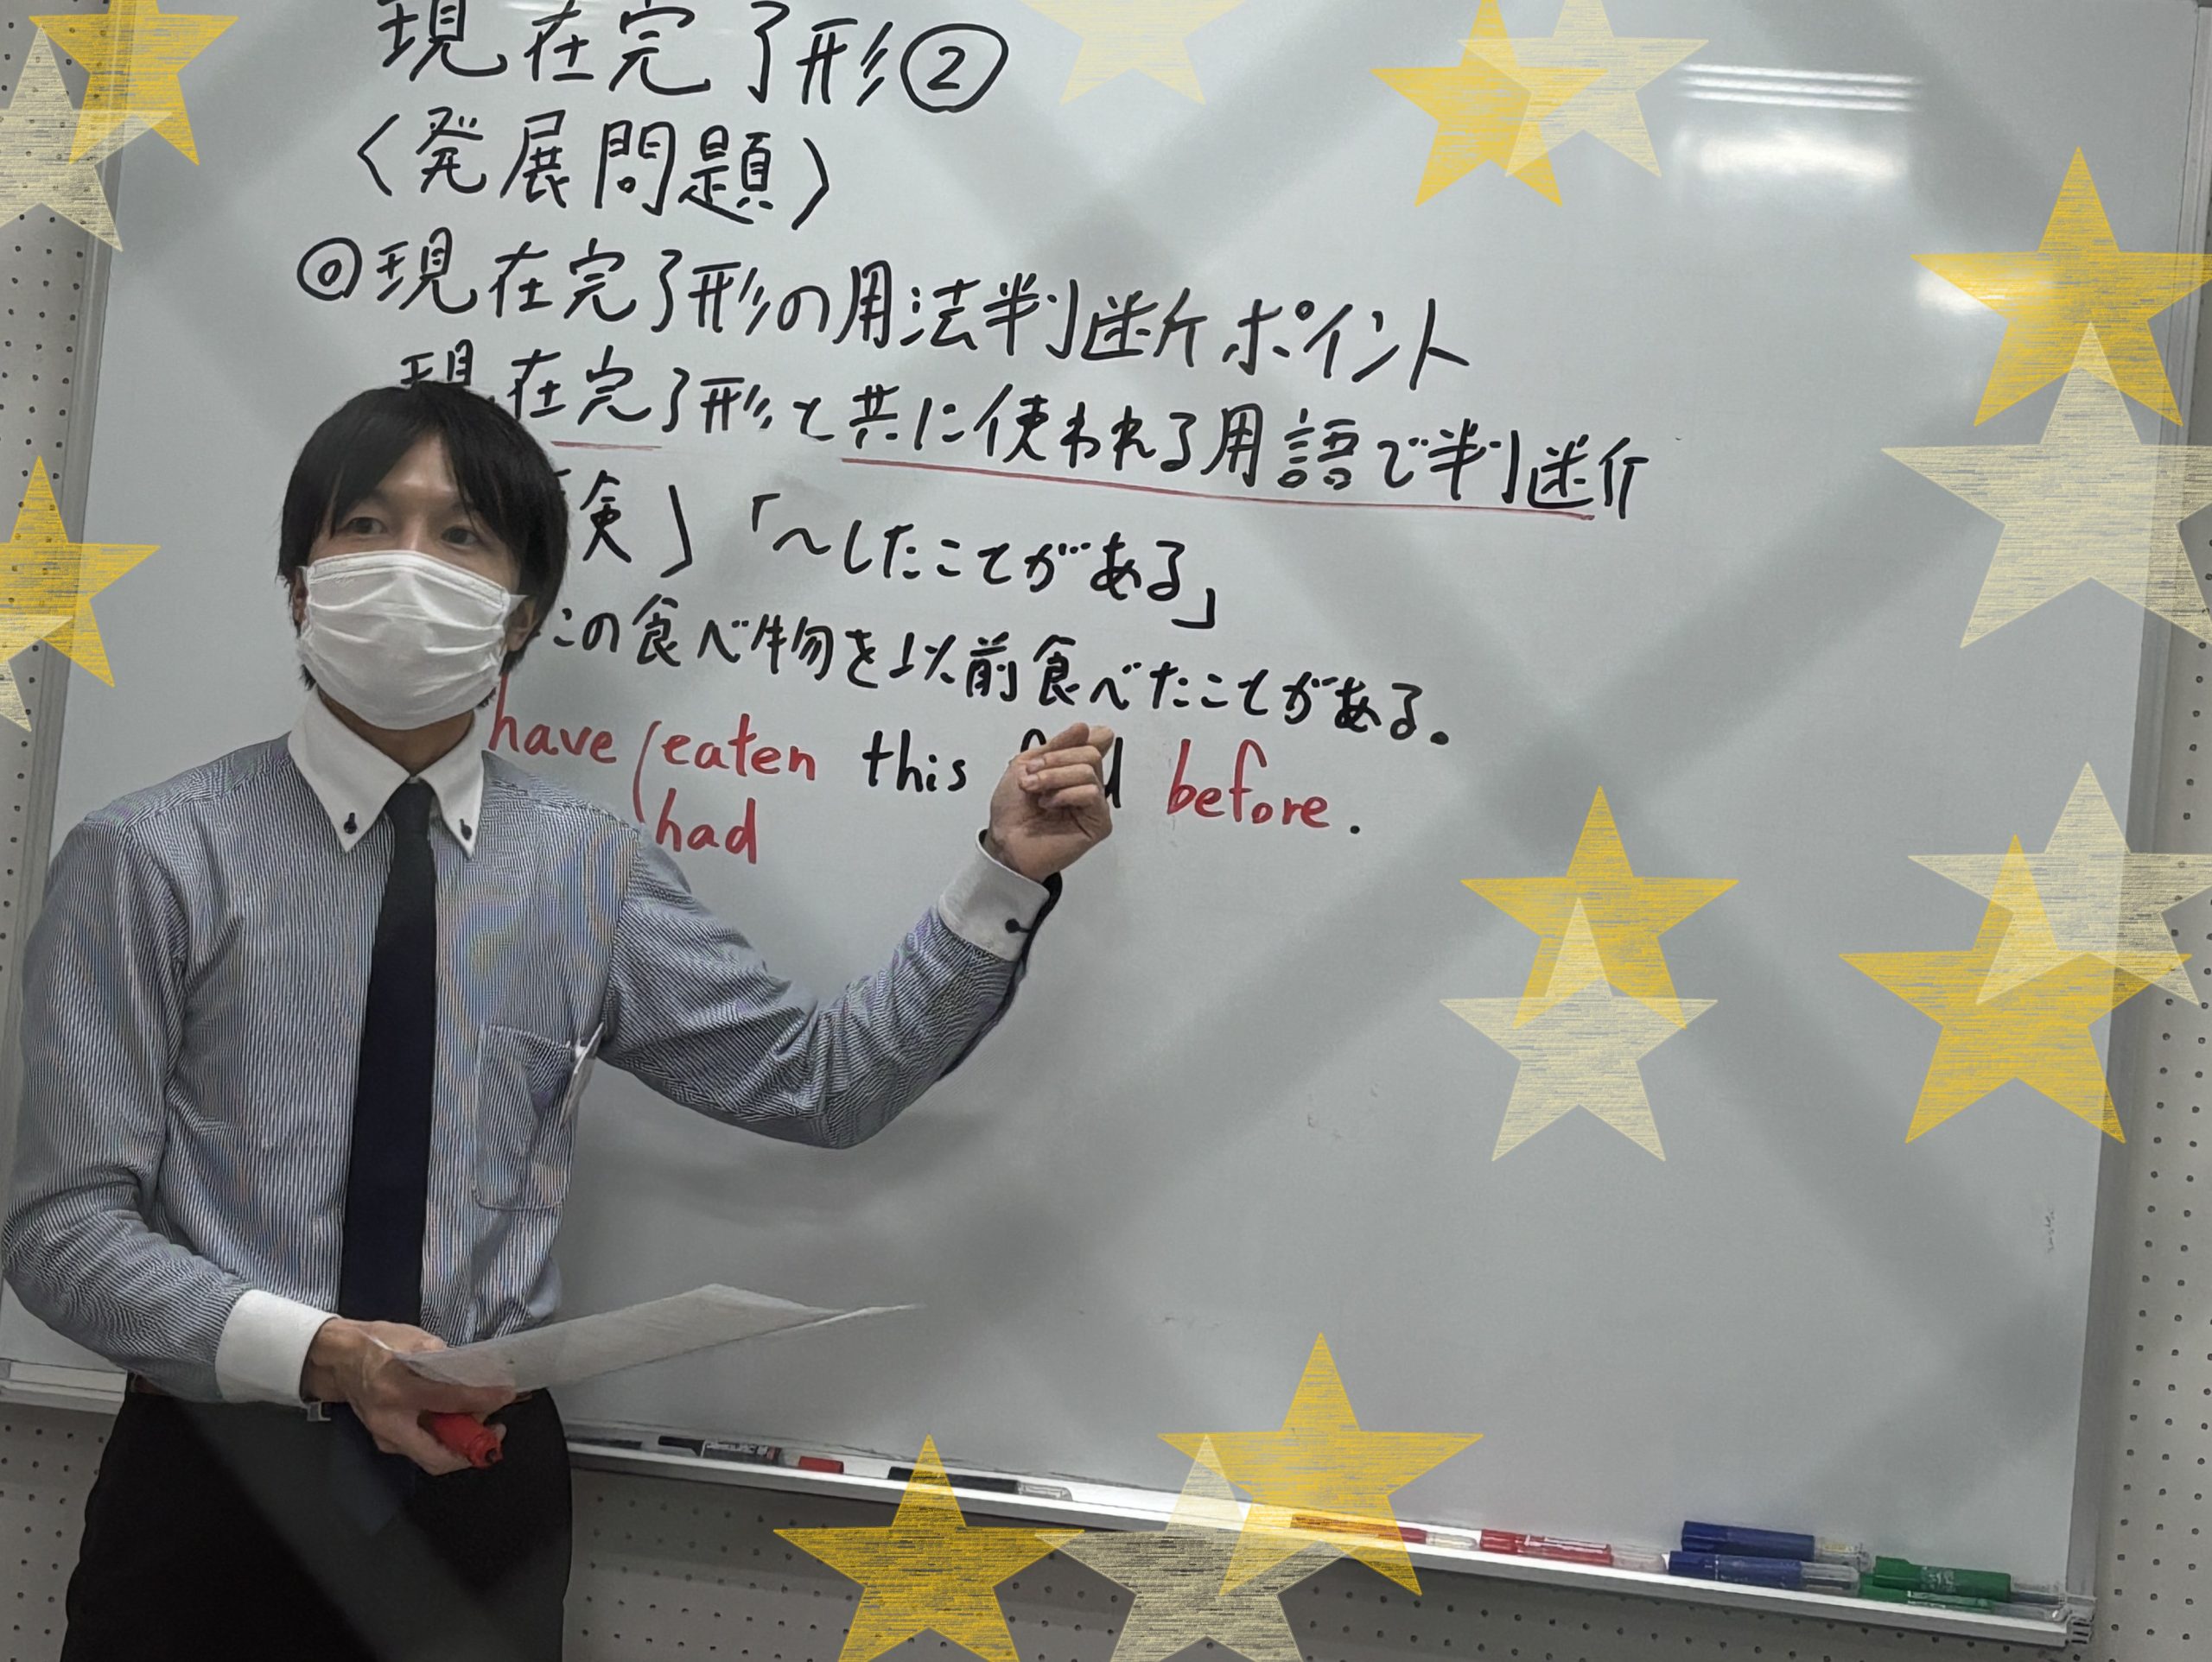 現在完了形②
〈発展問題〉
◎現在完了形の用法判断ポイント
現在完了形と共に使われる用語で判断
験」「～したことがある」
この食べ物を以前食べたことがある。
have eaten this before.
had